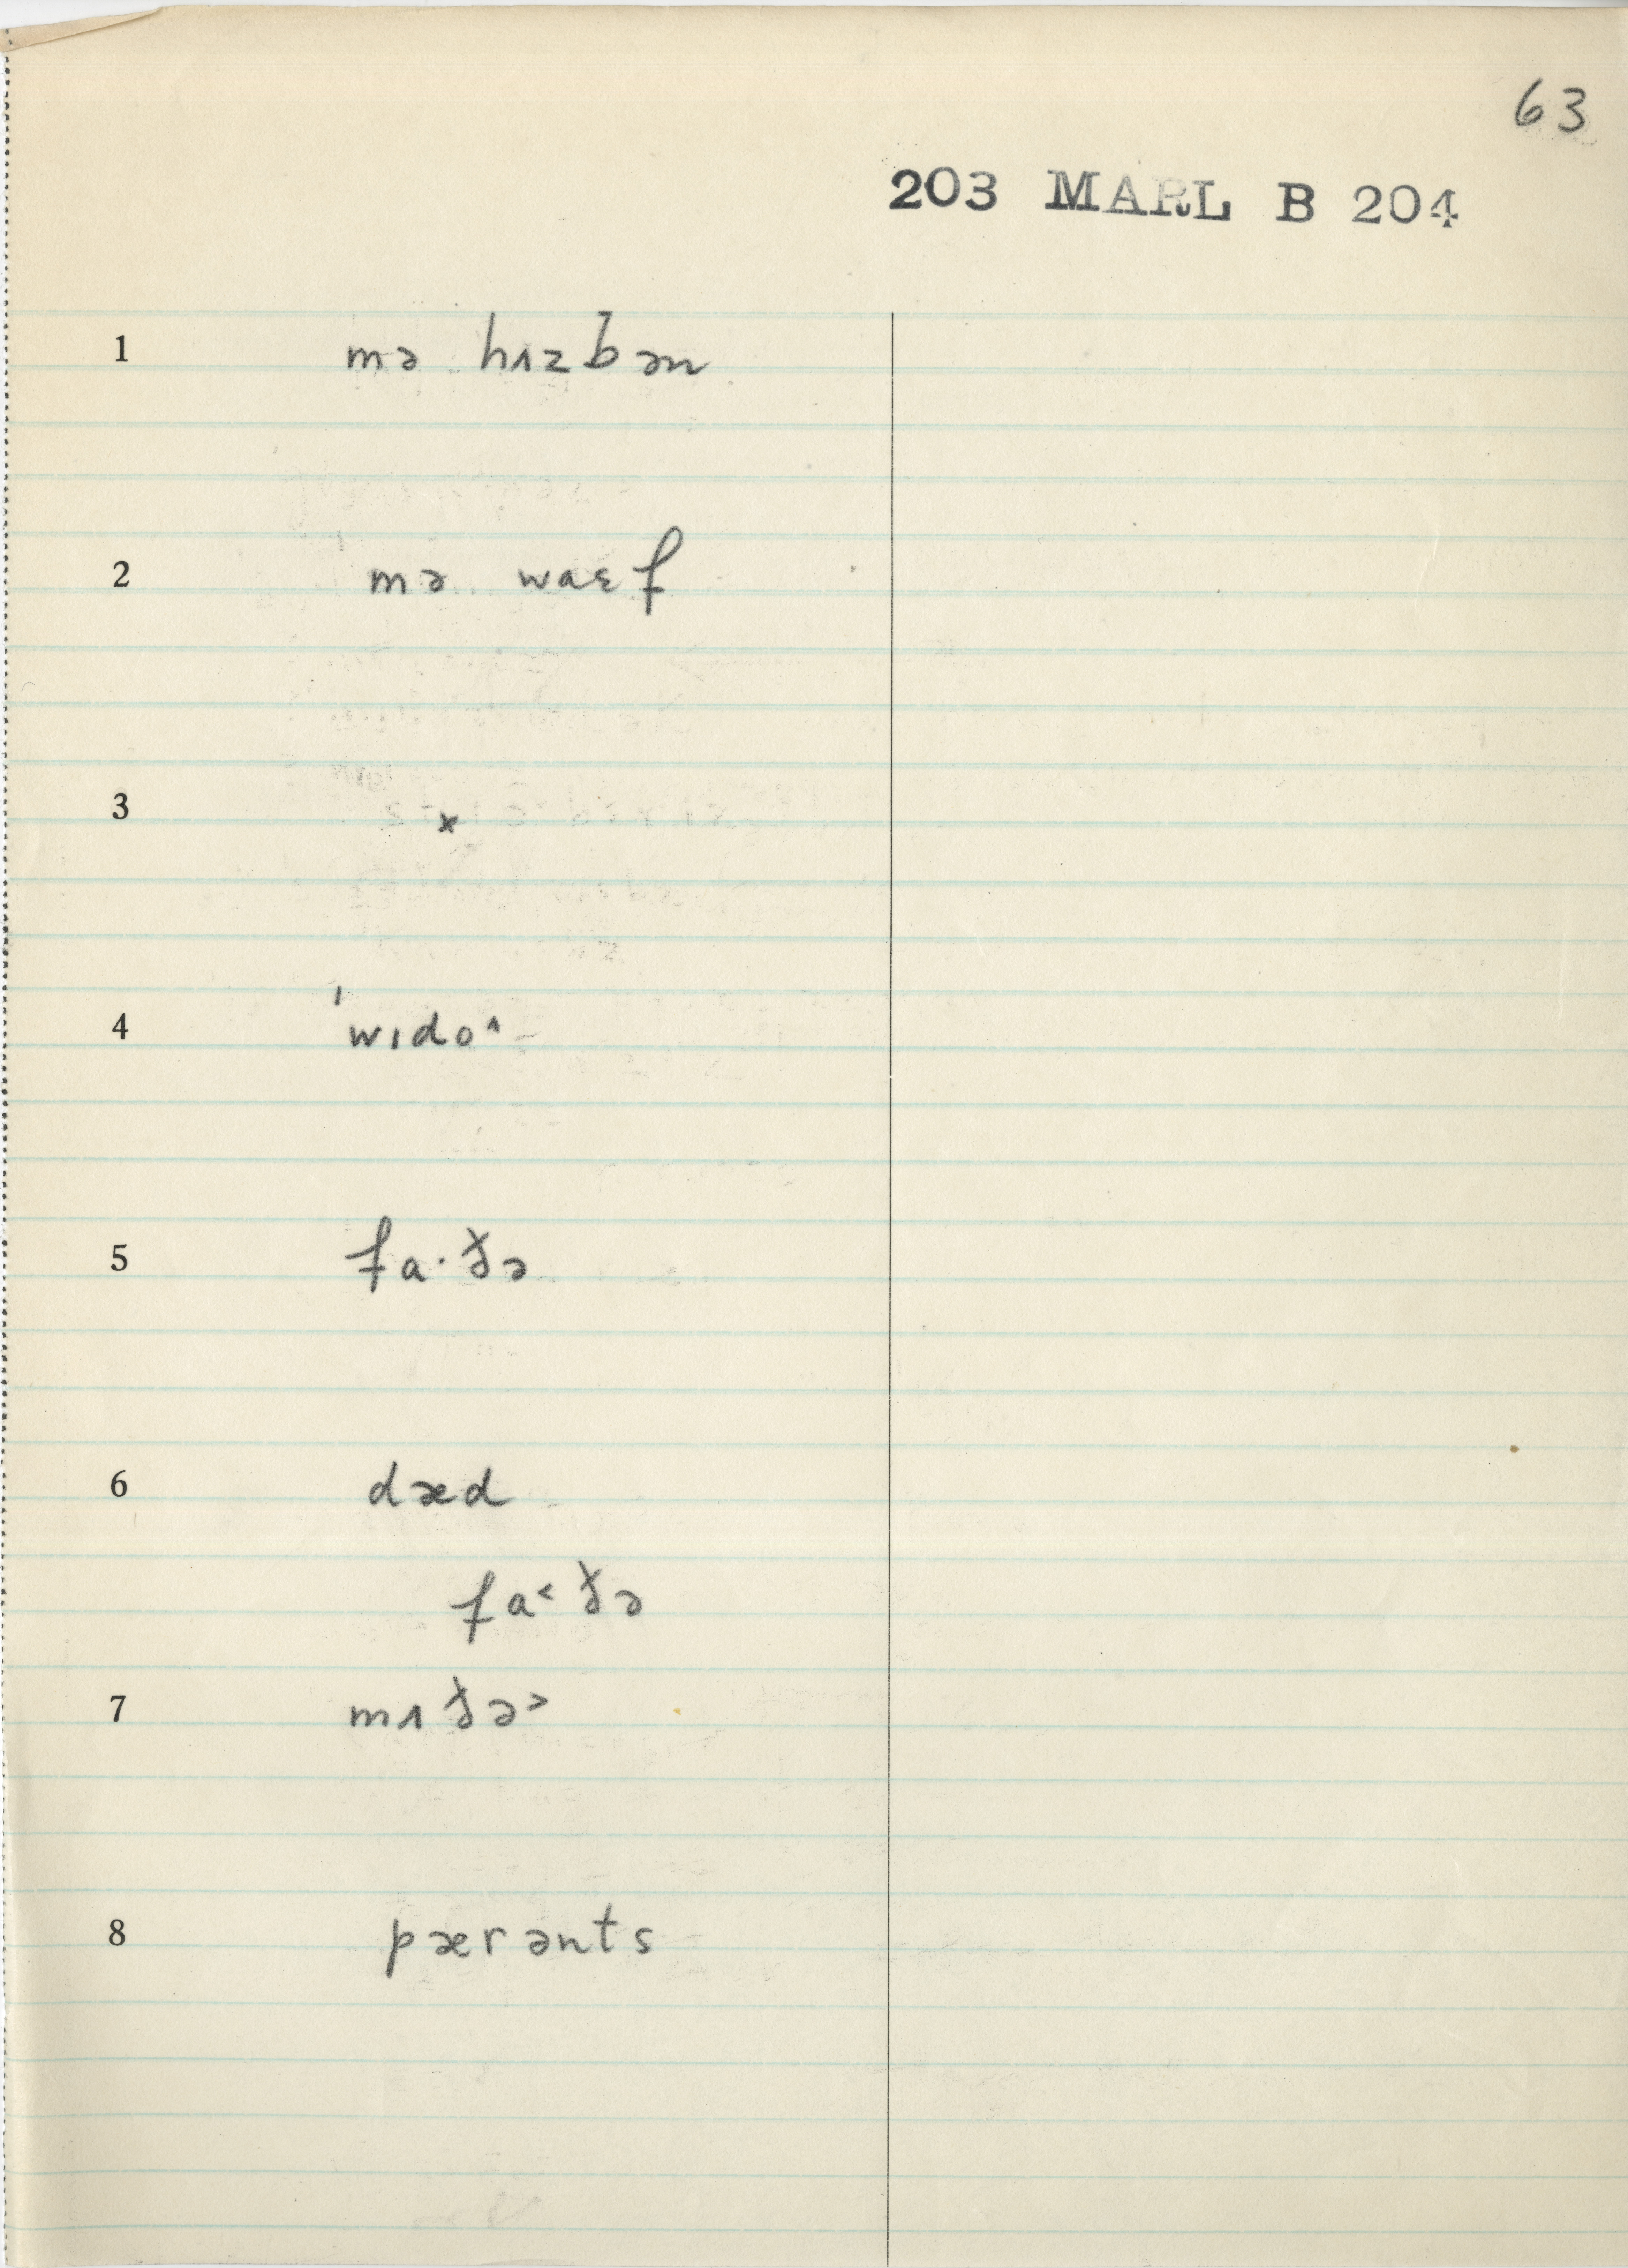 63
203 MARL B 204
1 mə hɪzb̵ən
2 mə waɛf
3 x
4 ˈwɪdo˄
5 fa·ðə
6 dæd
fa˂ðə
7 mɪðə˃
8 pærənts